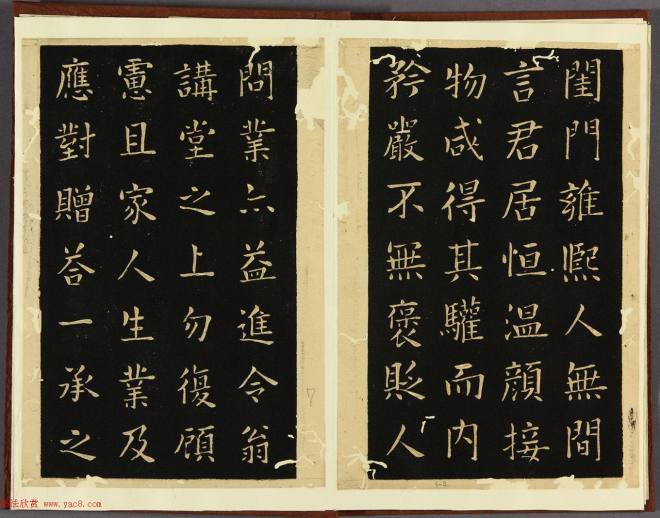 閨門雍熙人無間
言君居恒温顔接
物咸得其驩而内
矜嚴不無褒貶人
問業亦益進令翁
講堂之上勿復顧
慮且家人生業及
應對贈荅一承之
法欣赏 www.yac8.com